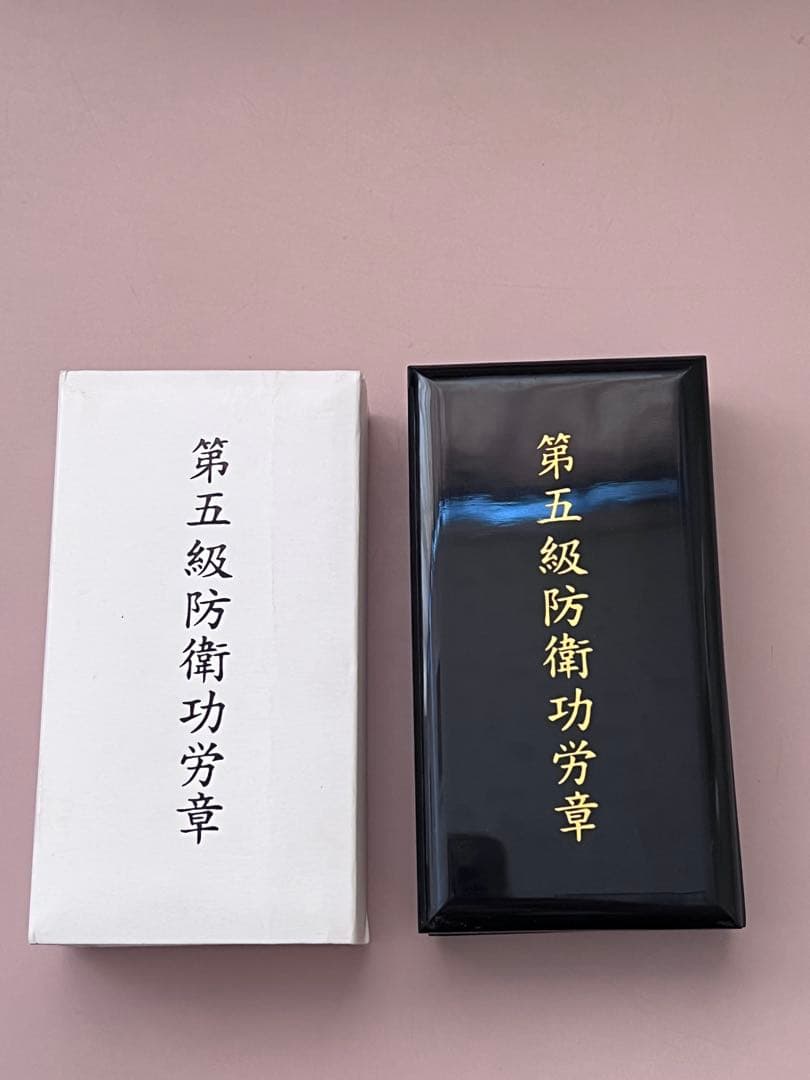 第五級防衛功労章
第五級防衛功労章